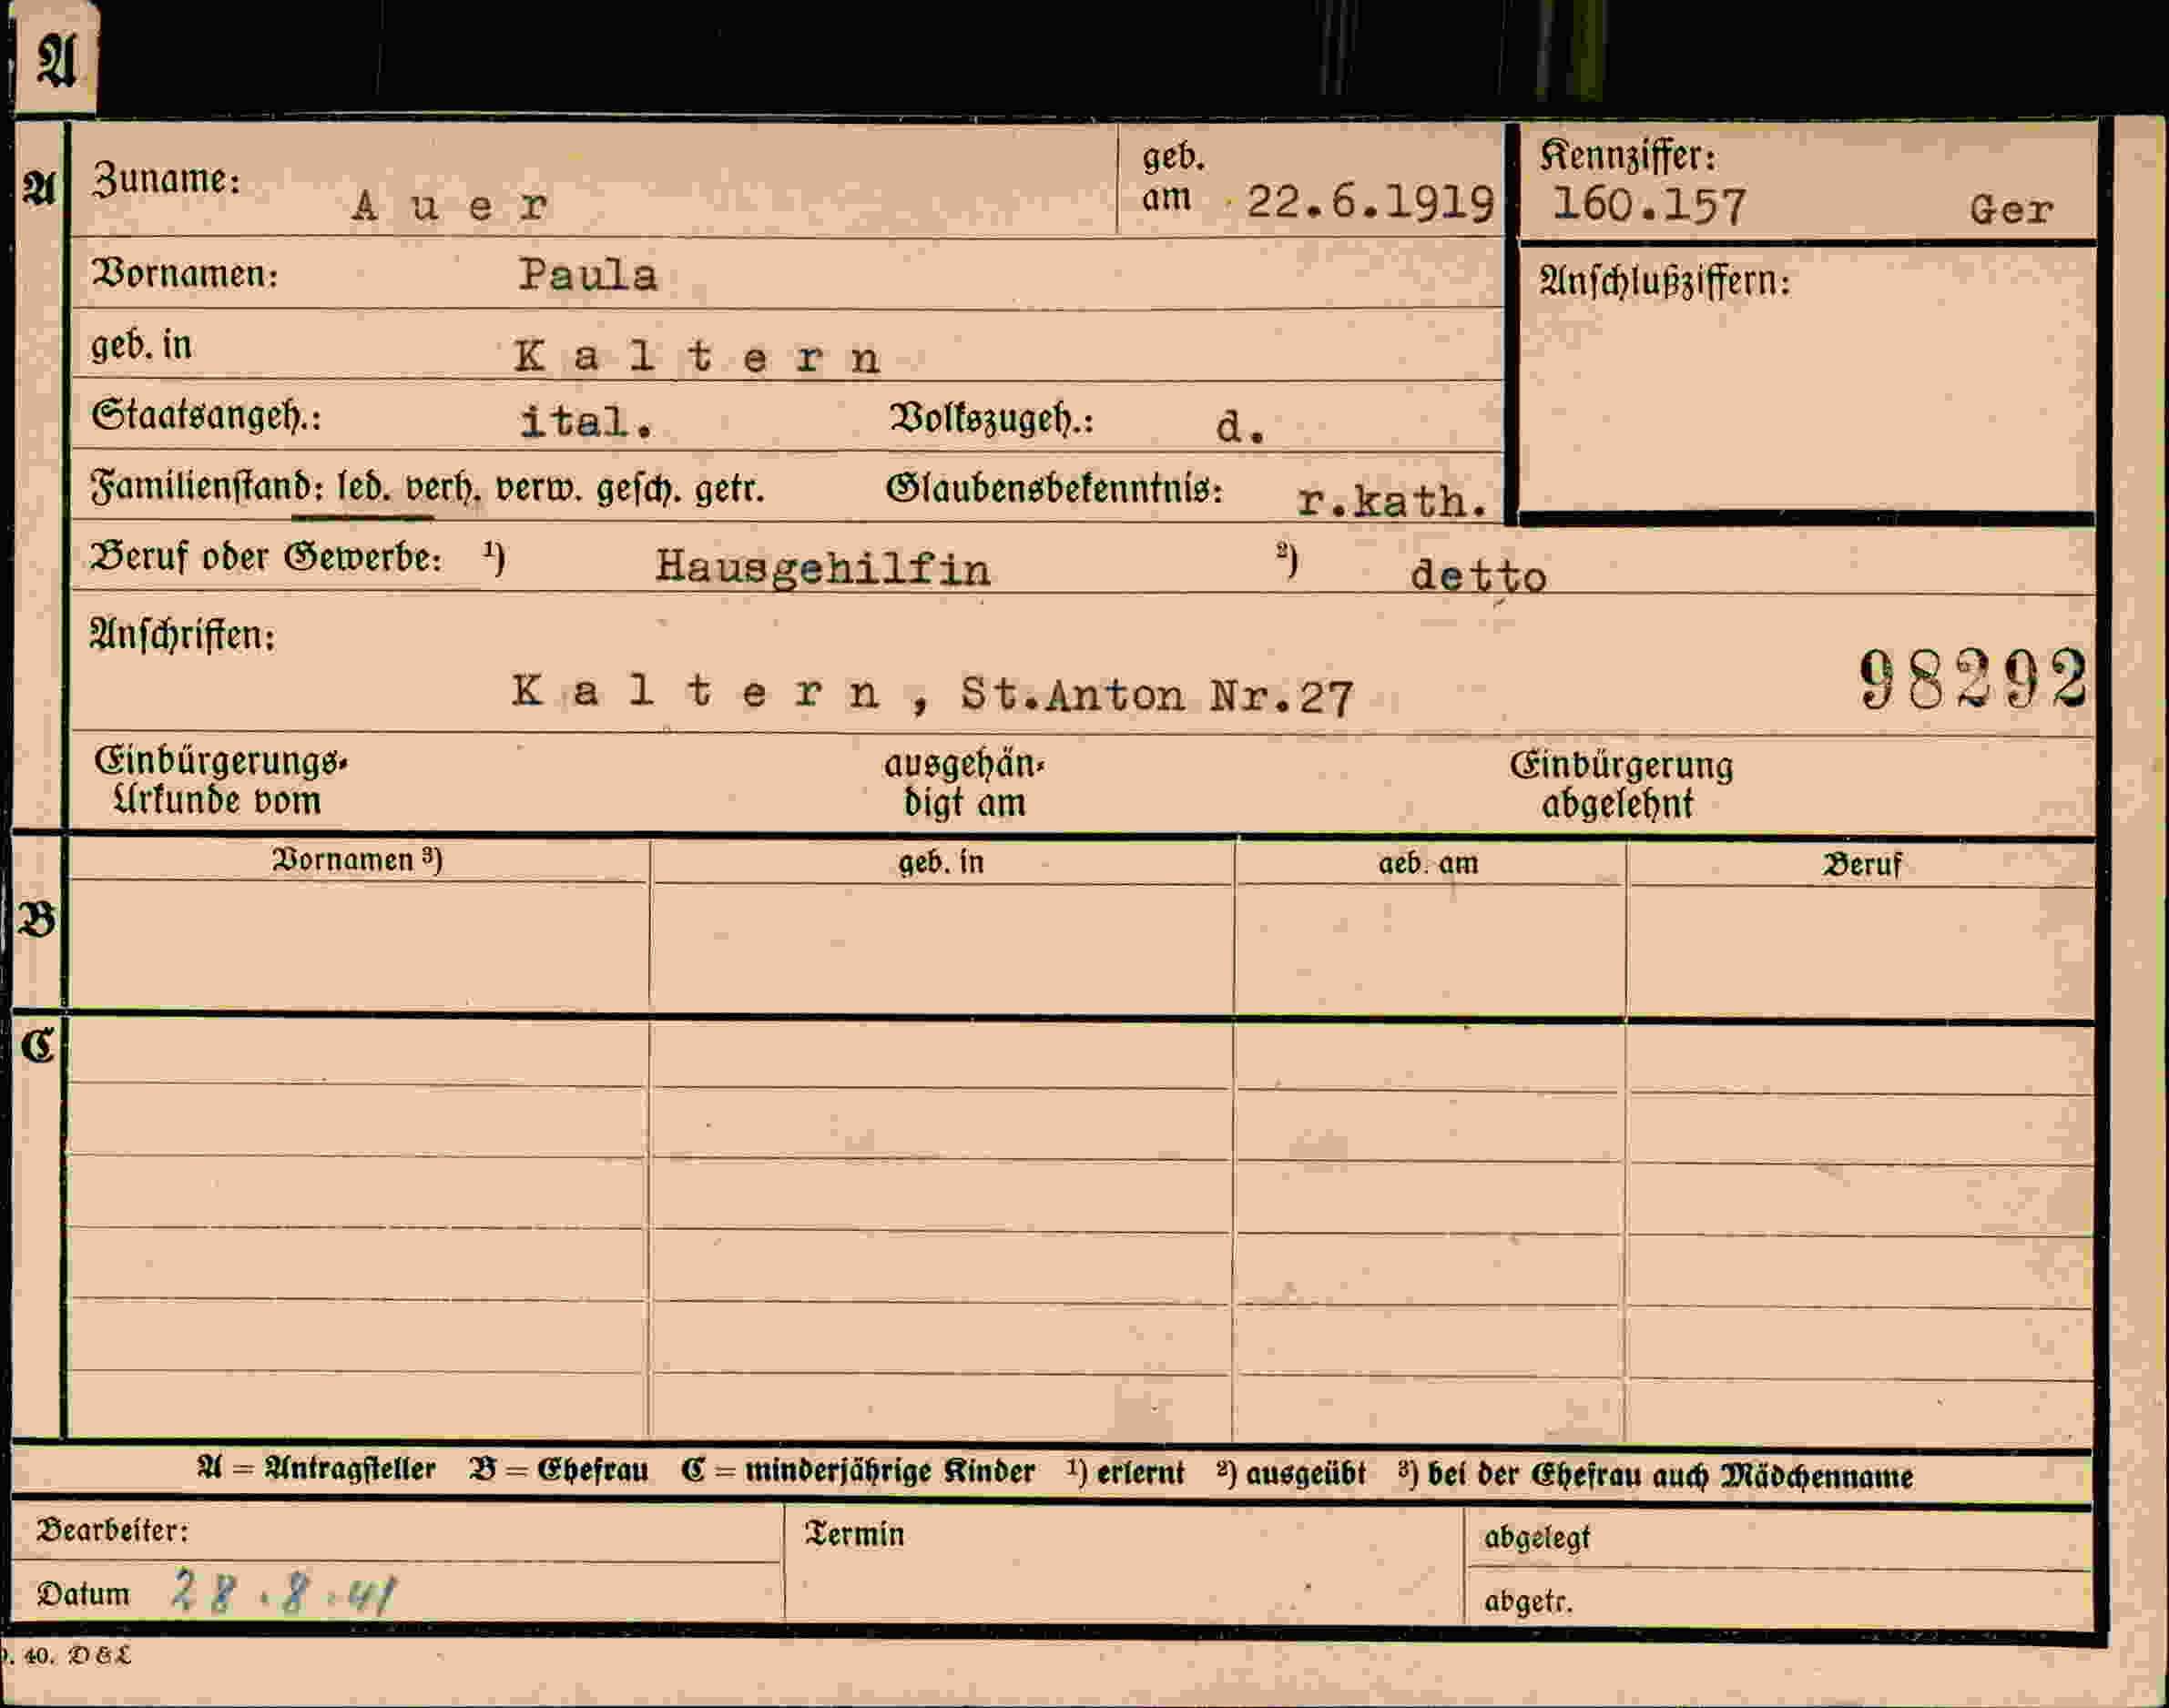 A
A
Zuname: Auer
geb. am 22.6.1919
Kennziffer:
160.157 Ger
Vornamen: Paula
Anschlußziffern:
geb. in Kaltern
Staatsangeh.: ital. Volkszugeh.: d.
Familienstand: led. verh. verw. gesch. getr. Glaubensbekenntnis: r.kath.
Beruf oder Gewerbe: ¹) Hausgehilfin ²) detto
Anschriften:
Kaltern, St.Anton Nr.27 98292
Einbürgerungs-
Urkunde vom
ausgehän-
digt am
Einbürgerung
abgelehnt
Vornamen ³) geb. in geb. am Beruf
B
C
A = Antragsteller B = Ehefrau C = minderjährige Kinder ¹) erlernt ²) ausgeübt ³) bei der Ehefrau auch Mädchenname
Bearbeiter: Termin abgelegt
Datum 28.8.41 abgetr.
40. D & L